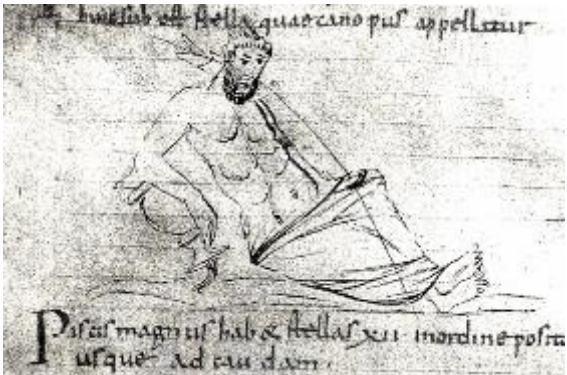 huic sub est stella quae canopus appellatur
Piscis magnus hab& stellas xii inordine posit
usque ad caudam.